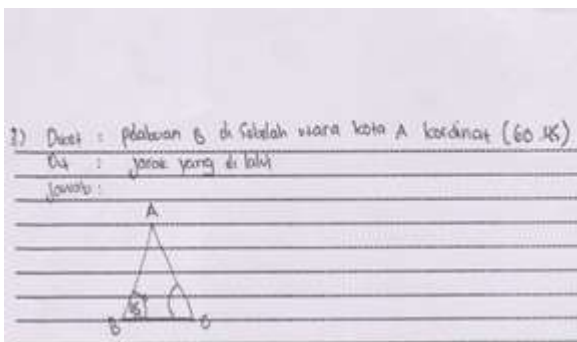 Diket : Pelabuan B di Sebelah utara kota A kordinat (60.45)
Dit : jarak yang di lalui
Jawab :
A
B
C